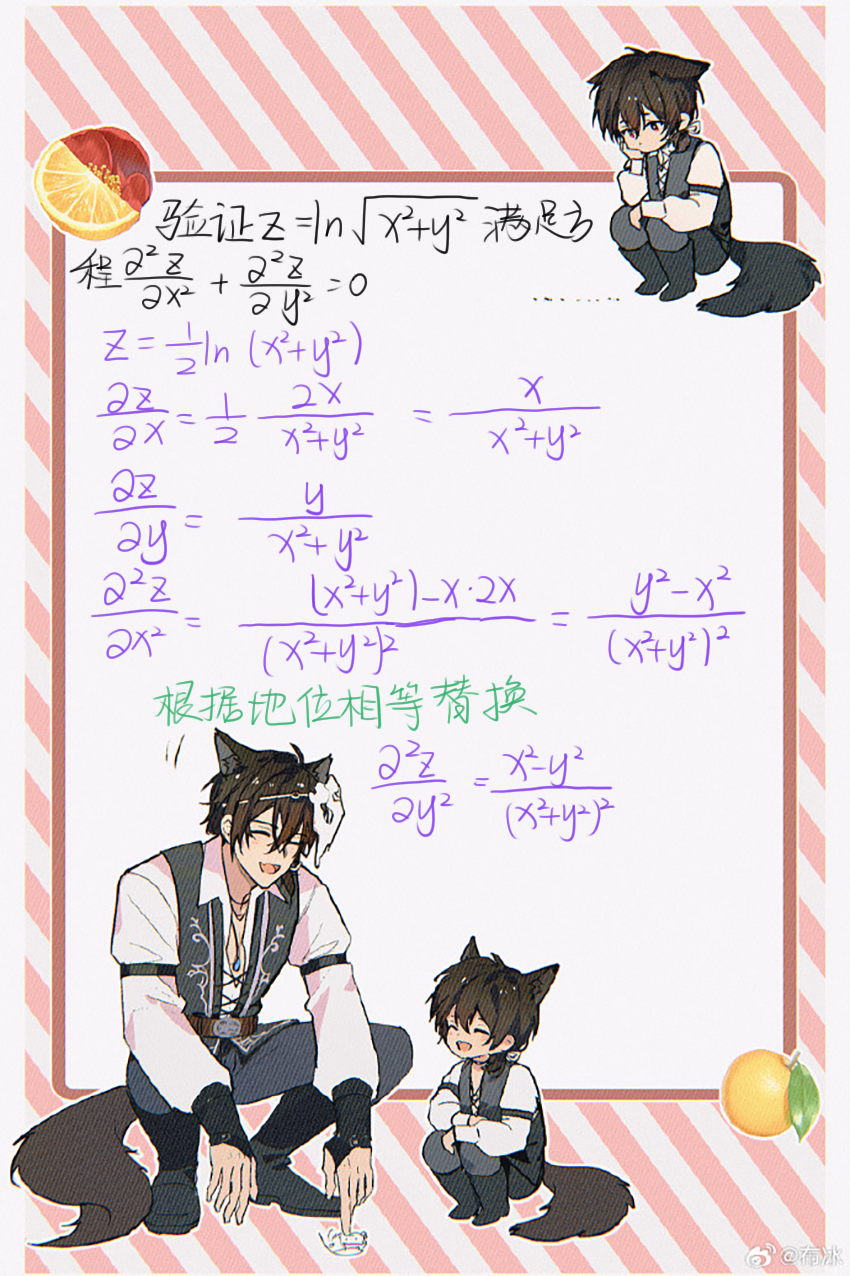 验证z=ln√(x²+y²) 满足方
程 ∂²z/∂x² + ∂²z/∂y² = 0
z = 1/2 ln (x²+y²)
∂z/∂x = 1/2 2x/(x²+y²) = x/(x²+y²)
∂z/∂y = y/(x²+y²)
∂²z/∂x² = ((x²+y²)-x·2x)/(x²+y²)² = (y²-x²)/(x²+y²)²
根据地位相等替换
∂²z/∂y² = (x²-y²)/(x²+y²)²
@布冰